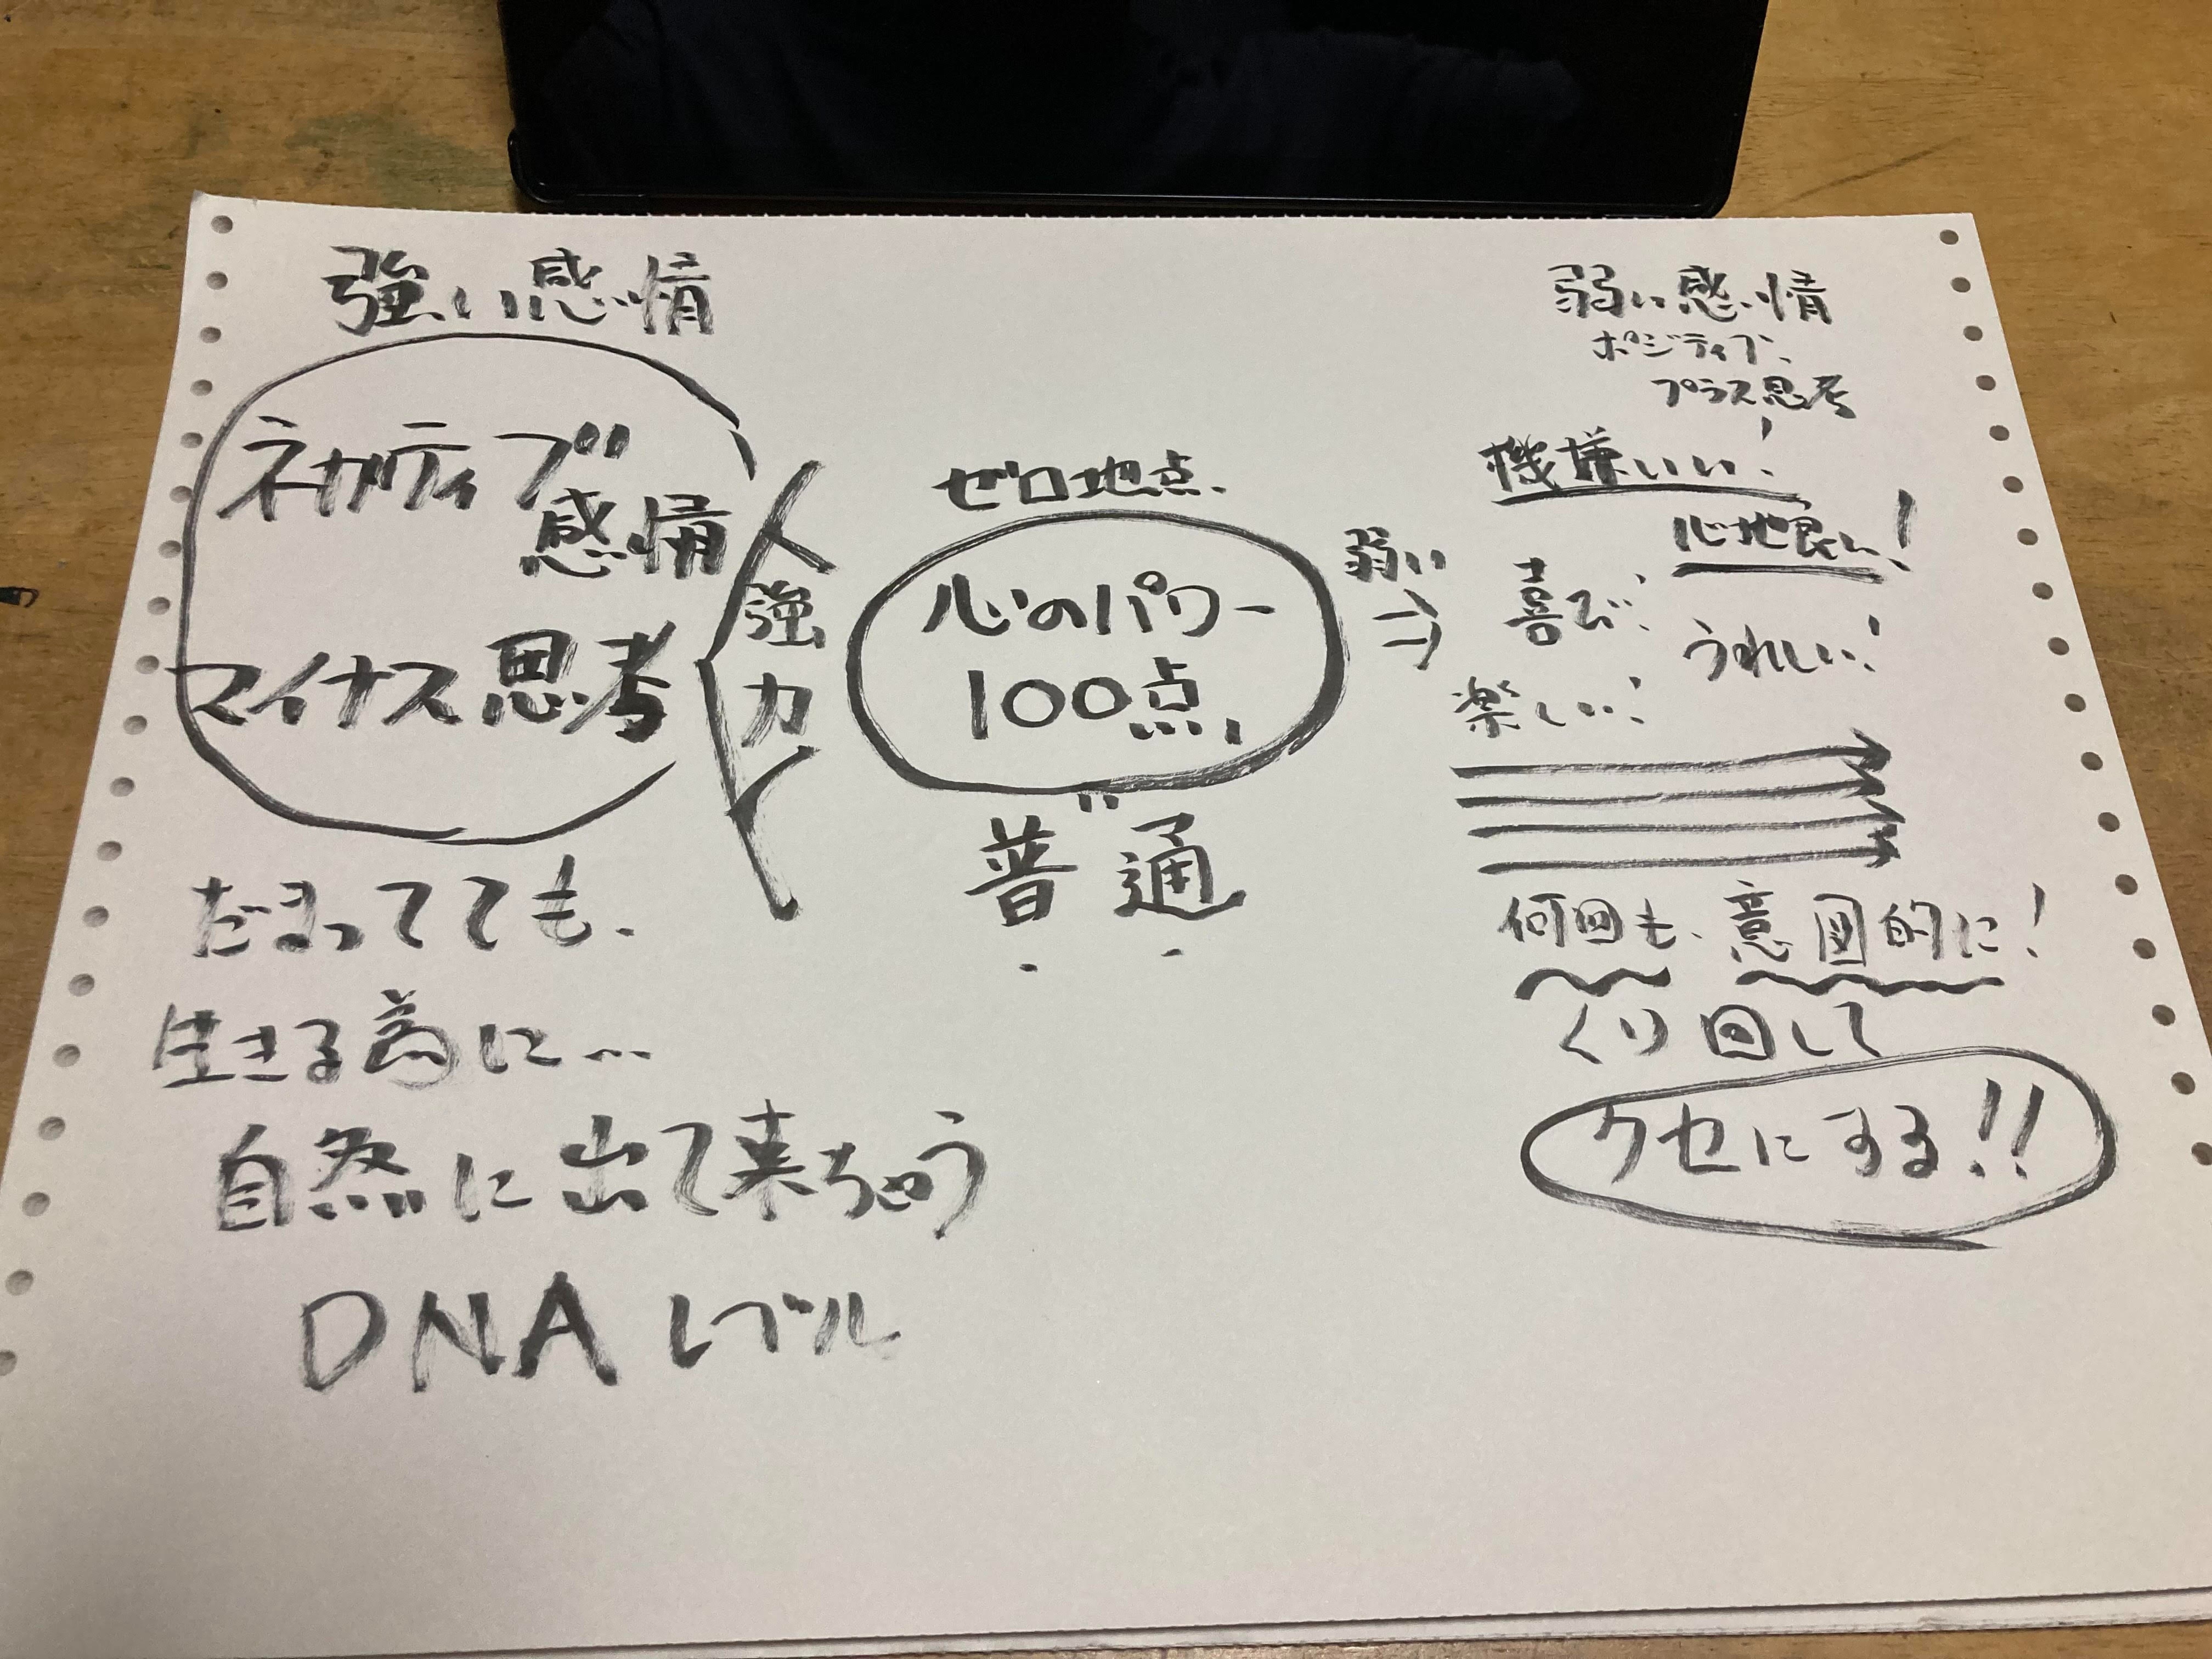 強い感情
ネガティブ
感情
マイナス思考
強力
だまってても、
生きる為に…
自然に出て来ちゃう
DNAレベル
ゼロ地点
心のパワー
100点
普通
弱い
弱い感情
ポジティブ、
プラス思考
機嫌いい!
心地良い!
喜び!
うれしい!
楽しい!
何回も、意図的に!
くり回して
クセにする!!